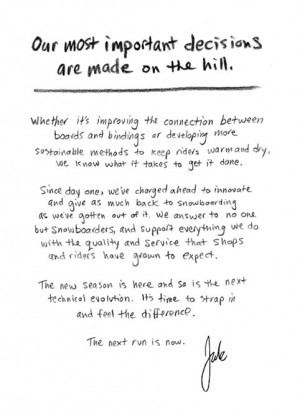 Our most important decisions
are made on the hill.
Whether it's improving the connection between
boards and bindings or developing more
sustainable methods to keep riders warm and dry,
we know what it takes to get it done.
Since day one, we've charged ahead to innovate
and give as much back to snowboarding
as we've gotten out of it. We answer to no one
but snowboarders, and support everything we do
with the quality and service that shops
and riders have grown to expect.
The new season is here and so is the next
technical evolution. It's time to strap in
and feel the difference.
The next run is now.
Jake